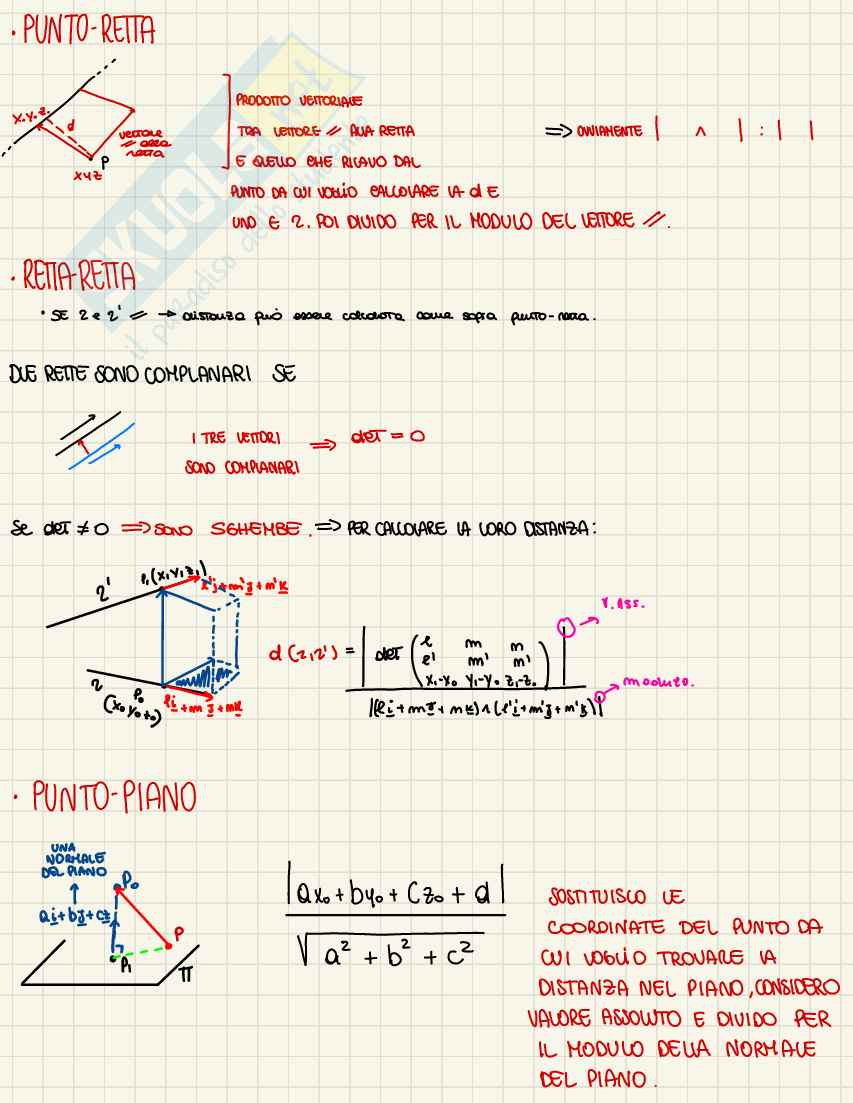 · PUNTO-RETTA
PRODOTTO VETTORIALE
TRA VETTORE // ALLA RETTA
E QUELLO CHE RICAVO DAL
PUNTO DA CUI VOGLIO CALCOLARE LA d E
UNO E 2. POI DIVIDO PER IL MODULO DEL VETTORE //.
⟹ OVVIAMENTE | ∧ | : | |
x.y.z.
d
vettore
// alla
retta
P
xyz
SKUOLA.net
il paradiso dello studente
· RETTA-RETTA
· SE r e r' // → distanza può essere calcolata come sopra punto-retta.
DUE RETTE SONO COMPLANARI SE
I TRE VETTORI ⟹ det = 0
SONO COMPLANARI
Se det ≠ 0 ⟹ SONO SGHEMBE. ⟹ PER CALCOLARE LA LORO DISTANZA:
r'
P₁(x₁y₁z₁)
l'i+m'j+n'k
r
P₀
(x₀y₀z₀)
li+mj+nk
d(r,r') = | det ( l m n
l' m' n'
x₁-x₀ y₁-y₀ z₁-z₀ ) |
|(li+mj+nk)∧(l'i+m'j+n'k)|
v.ass.
modulo.
· PUNTO-PIANO
UNA
NORMALE
DEL PIANO
ai+bj+cz
P₀
P
P₁
π
|ax₀+by₀+cz₀+d|
√a²+b²+c²
SOSTITUISCO LE
COORDINATE DEL PUNTO DA
CUI VOGLIO TROVARE LA
DISTANZA NEL PIANO, CONSIDERO
VALORE ASSOLUTO E DIVIDO PER
IL MODULO DELLA NORMALE
DEL PIANO.